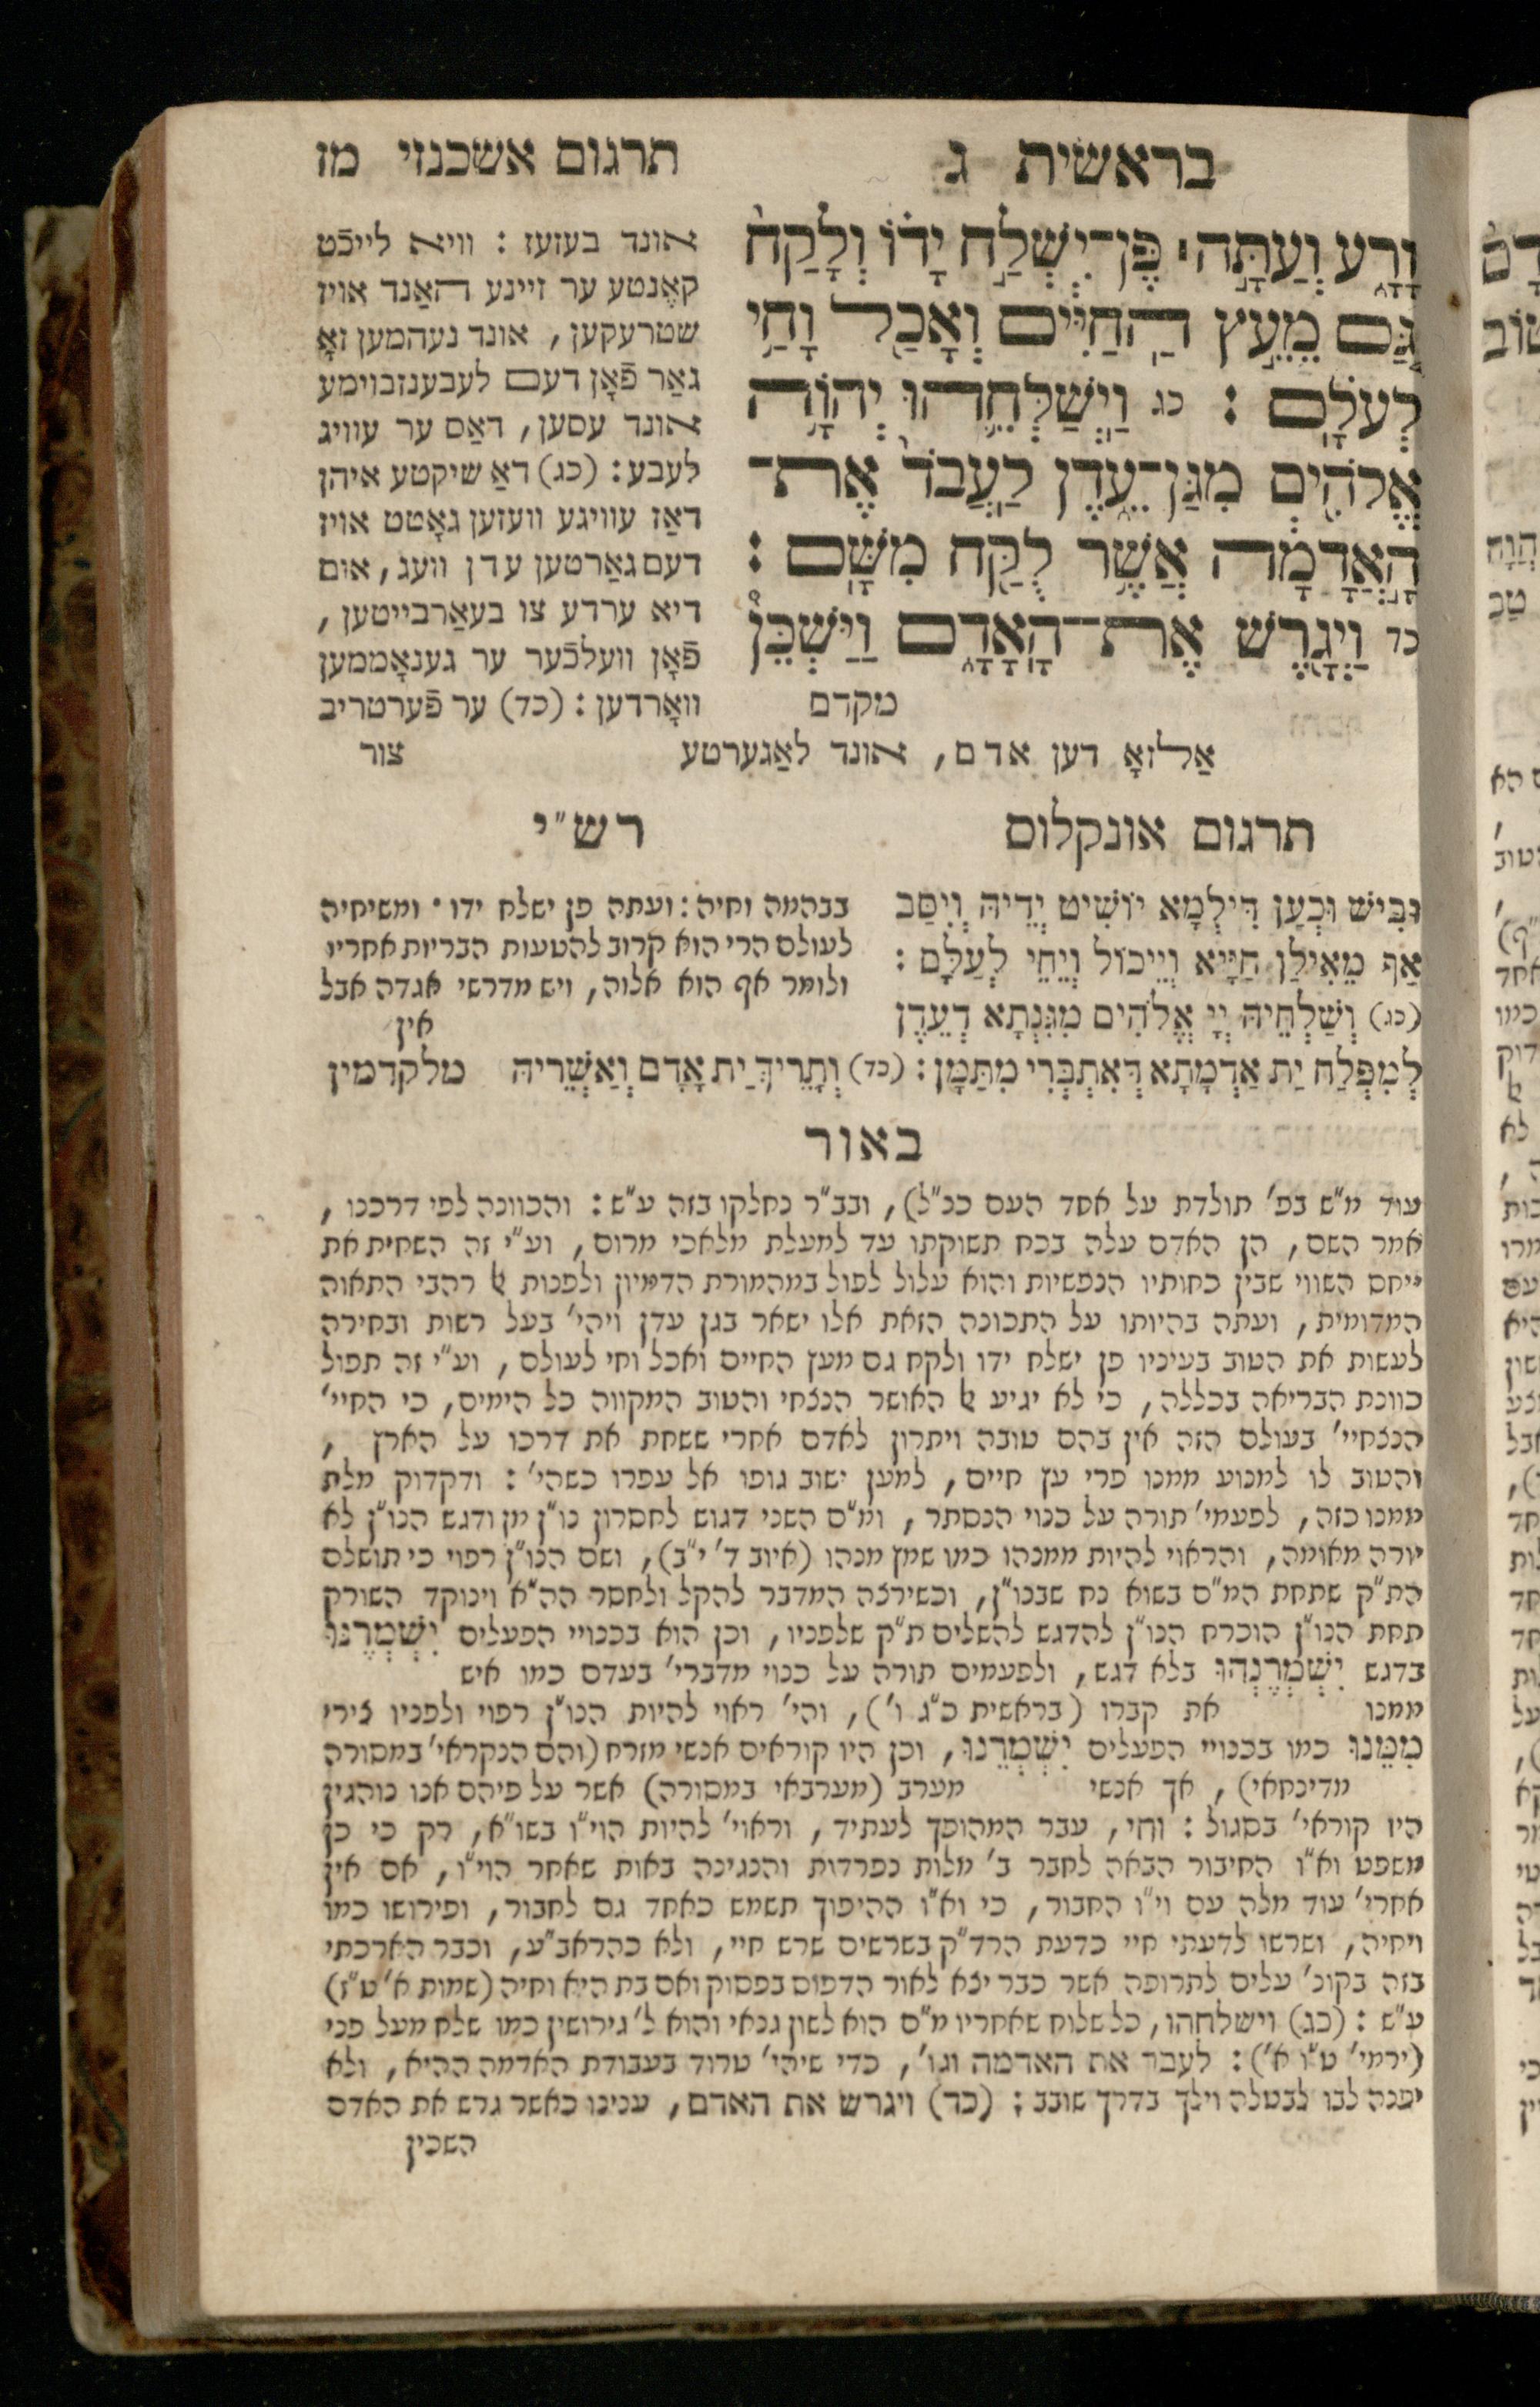 בראשית ג
תרגום אשכנזי מז
וָרָ֑ע וְעַתָּ֣ה׀ פֶּן־יִשְׁלַ֣ח יָד֗וֹ וְלָקַח֙
גַּ֚ם מֵעֵ֣ץ הַֽחַיִּ֔ים וְאָכַ֖ל וָחַ֥י
לְעֹלָֽם : כג וַֽיְשַׁלְּחֵ֛הוּ יְהוָ֥ה
אֱלֹהִ֖ים מִגַּן־עֵ֑דֶן לַֽעֲבֹד֙ אֶת־
הָ֣אֲדָמָ֔ה אֲשֶׁ֥ר לֻקַּ֖ח מִשָּֽׁם :
כד וַיְגָ֖רֶשׁ אֶת־הָֽאָדָ֑ם וַיַּשְׁכֵּן֩
מקדם
אונד בעזעז : וויא לייכֿט
קאֶנטע ער זיינע האַנד אויז
שטרעקען, אונד נעהמען זאָ
גאַר פֿאָן דעם לעבענזבוימע
אונד עסען, דאַס ער עוויג
לעבע : (כג) דאַ שיקטע איהן
דאַז עוויגע וועזען גאָטט אויז
דעם גאַרטען עדן וועג, אום
דיא ערדע צו בעאַרבייטען,
פֿאָן וועלכֿער ער גענאָממען
וואָרדען : (כד) ער פֿערטריב
אַלזאָ דען אדם, אונד לאַגערטע
צור
תרגום אונקלוס
וּבִישׁ וּכְעַן דִּילְמָא יוֹשִׁיט יְדֵיהּ וְיִסַּב
אַף מֵאִילַן חַיָּיא וְיֵיכוֹל וְיֵחֵי לְעַלָּם :
(כג) וְשַׁלְחֵיהּ יְיָ אֱלֹהִים מִגִּנְתָא דְעֵדֶן
לְמִפְלַח יַת אַדְמָתָא דְּאִתְבְּרִי מִתַּמָּן : (כד) וְתָרֵיךְ יַת אָדָם וְאַשְׁרֵיהּ מלקדמין
רש״י
בבהמה וחיה : ועתה פן ישלח ידו · ומשיחיה
לעולם הרי הוא קרוב להטעות הבריות אחריו
ולומר אף הוא אלוה, ויש מדרשי אגדה אבל
אין
באור
עוד מ״ש בפ׳ תולדת על אחד העם ככ״ל), ובב״ר נחלקו בזה ע״ש : והכוונה לפי דרכנו,
אמר השם, הן האדם עלה בכח תשוקתו עד למעלת מלאכי מרום, וע״י זה השחית את
יחס השווי שבין כחותיו הנפשיות והוא עלול לפול במהמורת הדמיון ולפנות אל רהבי התאוה
המדומית, ועתה בהיותו על התכונה הזאת אלו ישאר בגן עדן ויהי׳ בעל רשות ובחירה
לעשות את הטוב בעיניו פן ישלח ידו ולקח גם מעץ החיים ואכל וחי לעולם, וע״י זה תפול
כוונת הבריאה בכללה, כי לא יגיע אל האושר הנצחי והטוב המקווה כל הימים, כי החיי׳
הנצחיי׳ בעולם הזה אין בהם טובה ויתרון לאדם אחרי ששחת את דרכו על הארץ,
והטוב לו למנוע ממנו פרי עץ חיים, למען ישוב גופו אל עפרו כשהי׳ : ודקדוק מלת
ממנו כזה, לפעמי׳ תורה על כנוי הנסתר, ומ״ם השני דגוש לחסרון נו״ן מן ודגש הנו״ן לא
יורה מאומה, והראוי להיות ממנהו כמו שמץ מנהו (איוב ד׳ י״ב), ושם הנו״ן רפוי כי תושלם
הת״ק שתחת המ״ם בשוא נח שבנו״ן, וכשירצה המדבר להקל ולחסר הה״א וינוקד השורק
תחת הנו״ן הוכרח הנו״ן להדגש להשלים ת״ק שלפניו, וכן הוא בכנויי הפעלים יִשְׁמְרֶנּוּ
בדגש יִשְׁמְרֶנְהוּ בלא דגש, ולפעמים תורה על כנוי מדברי׳ בעדם כמו איש
ממנו את קברו (בראשית כ״ג ו׳), והי׳ ראוי להיות הנו״ן רפוי ולפניו צירי
מִמֵּנוּ כמו בכנויי הפעלים יִשְׁמְרֵנוּ, וכן היו קוראים אנשי מזרח (והם הנקראי׳ במסורה
מדינחאי), אך אנשי מערב (מערבאי במסורה) אשר על פיהם אנו נוהגין
היו קוראי׳ בסגול : וחי, עבר המהופך לעתיד, וראוי׳ להיות הוי״ו בשו״א, רק כי כן
משפט וא״ו החיבור הבאה לחבר ב׳ מלות נפרדות והנגינה באות שאחר הוי״ו, אם אין
אחרי׳ עוד מלה עם וי״ו החבור, כי וא״ו ההיפוך תשמש כאחד גם לחבור, ופירושו כמו
ויחיה, ושרשו לדעתי חיי כדעת הרד״ק בשרשים שרש חיי, ולא כהראב״ע, וכבר הארכתי
בזה בקונ׳ עלים לתרופה אשר כבר יצא לאור הדפוס בפסוק ואם בת היא וחיה (שמות א׳ ט״ז)
ע״ש : (כג) וישלחהו, כל שלוח שאחריו מ״ם הוא לשון גנאי והוא ל׳ גירושין כמו שלח מעל פני
(ירמי׳ ט״ו א׳) : לעבד את האדמה וגו׳, כדי שיהי׳ טרוד בעבודת האדמה ההיא, ולא
יפנה לבו לבטלה וילך בדרך שובב : (כד) ויגרש את האדם, ענינו כאשר גרש את האדם
השכין